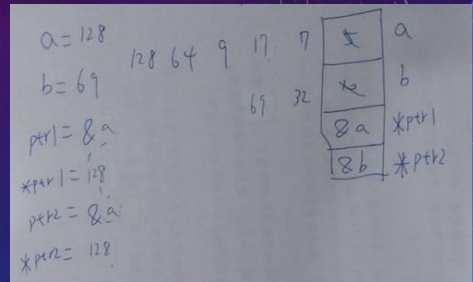 a = 128
b = 69
ptr1 = &a
*ptr1 = 128
ptr2 = &a
*ptr2 = 128
128 64 9 17 7 a
69 32 b
&a *ptr1
&b *ptr2